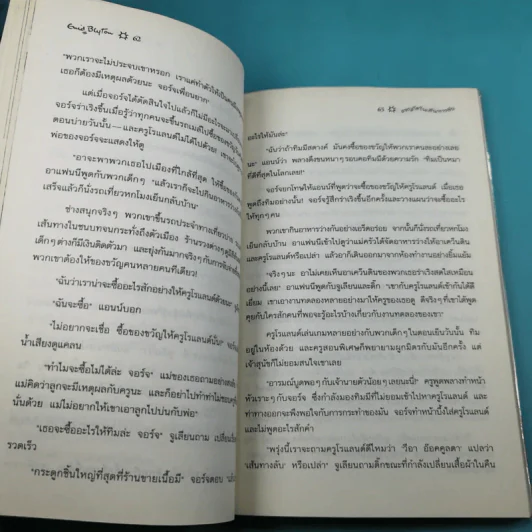 Enid Blyton 62
"พวกเราจะไม่ประจบเขาหรอก เราแค่ทำตัวให้เป็น
เธอก็ต้องมีเหตุผลด้วยนะ จอร์จเพื่อนยาก"
แต่เมื่อจอร์จได้ตัดสินใจไปแล้วก็ไม่มี
จอร์จร่าเริงขึ้นเมื่อรู้ว่าทุกคนจะขึ้นรถเมล์ไปซื้อของขวัญ
ตอนบ่ายวันนั้น—และครูโรแลนด์ไม่ได้ไปด้วย
พ่อของจอร์จจะแสดงให้ดู
"อาจะพาพวกเธอไปเมืองที่ใกล้ที่สุด ให้ซื้อของ
อาแฟนนีพูดกับพวกเด็กๆ "แล้วเราก็จะไปกินอาหารว่าง
เสร็จแล้วก็นั่งรถเที่ยวหกโมงเย็นกลับบ้าน"
ช่างสนุกจริงๆ พวกเขาขึ้นรถประจำทางเที่ยวบ่าย
เส้นทางในชนบทจนกระทั่งถึงตัวเมือง ร้านรวงต่างๆ
เด็กๆ ต่างก็มีเงินติดตัวมา และยุ่งกันมากจริงๆ กับการ
พวกเขาต้องให้ของขวัญคนหลายคนทีเดียว!
"ฉันว่าเราน่าจะซื้ออะไรสักอย่างให้ครูโรแลนด์
"ฉันจะซื้อ" แอนน์บอก
"ไม่อยากจะเชื่อ ซื้อของขวัญให้ครูโรแลนด์นั่น"
น้ำเสียงดูแคลน
"ทำไมจะซื้อไม่ได้ล่ะ จอร์จ" แม่ของเธอถาม
แม่คิดว่าลูกจะมีเหตุผลกับครูนะ และก็อย่าไปทำท่าไม่ชอบ
นั่นด้วย แม่ไม่อยากให้เขาเอาลูกไปบ่นกับพ่อ"
"เธอจะซื้ออะไรให้ทิมล่ะ จอร์จ" จูเลียนถาม
รวดเร็ว
"กระดูกชิ้นใหญ่ที่สุดที่ร้านขายเนื้อมี" จอร์จตอบ
63
อะไรให้มันล่ะ"
"ฉันว่าถ้าทิมมีสตางค์ มันคงซื้อของขวัญให้พวกเราคนละอย่างเลย
นะ" แอนน์ว่า พลางดึงขนหนาๆ รอบคอทิมมีด้วยความรัก "ทิมเป็นหมา
ที่ดีที่สุดในโลกเลย!"
จอร์จยกโทษให้แอนน์ที่พูดว่าจะซื้อของขวัญให้ครูโรแลนด์ เมื่อเธอ
พูดถึงทิมอย่างนั้น! จอร์จรู้สึกร่าเริงขึ้นอีกครั้งและวางแผนว่าจะซื้ออะไร
ให้ทุกๆ คน
พวกเขากินอาหารว่างกันอย่างเอร็ดอร่อย จากนั้นก็นั่งรถเที่ยวหกโมง
เย็นกลับมา อาแฟนนีเข้าไปดูว่าแม่ครัวได้จัดอาหารว่างให้อาควันติน
และครูโรแลนด์หรือเปล่า แล้วอาก็เดินออกมาจากห้องทำงานอย่างยิ้มแย้ม
"จริงๆ นะ อาไม่เคยเห็นอาควันตินของพวกเธอร่าเริงสดใสเหมือน
อย่างนี้เลย" อาแฟนนีพูดกับจูเลียนและดิ๊ก "เขากับครูโรแลนด์เข้ากันได้ดี
เยี่ยม เขาเอางานทดลองหลายอย่างมาให้ครูของเธอดู ดีจริงๆ ที่เขาได้พูด
คุยกับใครสักคนที่พอจะรู้อะไรบ้างเกี่ยวกับงานทดลองของเขา"
ครูโรแลนด์เล่นเกมหลายอย่างกับพวกเด็กๆ ในตอนเย็นวันนั้น ทิม
อยู่ในห้องด้วย และครูสอนพิเศษก็พยายามผูกมิตรกับมันอีกครั้ง แต่
เจ้าสุนัขก็ไม่ยอมสนใจเขาเลย
"อารมณ์บูดพอๆ กับเจ้านายตัวน้อยๆ เลยนะนี่!" ครูพูดพลางทำหน้า
หัวเราะๆ กับจอร์จ ซึ่งกำลังมองทิมมีที่ไม่ยอมเข้าไปหาครูโรแลนด์ และ
ท่าทางออกจะพึงพอใจกับการกระทำของมัน จอร์จทำหน้าบึ้งใส่ครูโรแลนด์
และไม่พูดอะไรสักคำ
"พรุ่งนี้เราจะถามครูโรแลนด์ดีไหมว่า 'วีอา อ๊อคคูลตา' แปลว่า
'เส้นทางลับ' หรือเปล่า" จูเลียนถามดิ๊กขณะที่กำลังเปลี่ยนเสื้อผ้าในคืน